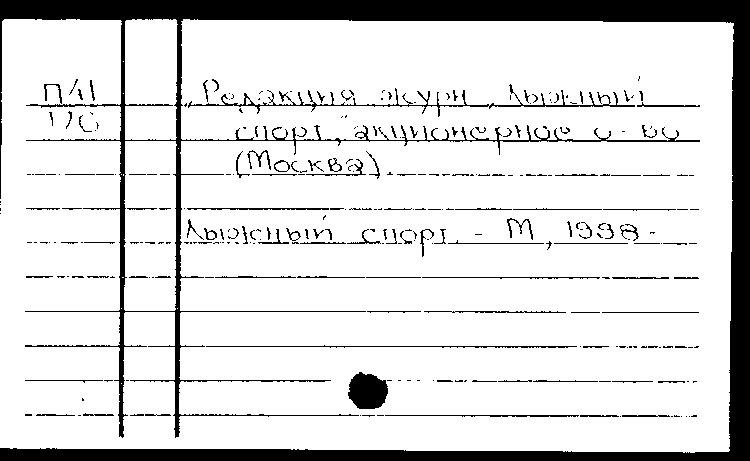 П41
176
„Редакция журн „Лыжный
спорт," акционерное о-во
(Москва).
Лыжный спорт. - М, 1998-